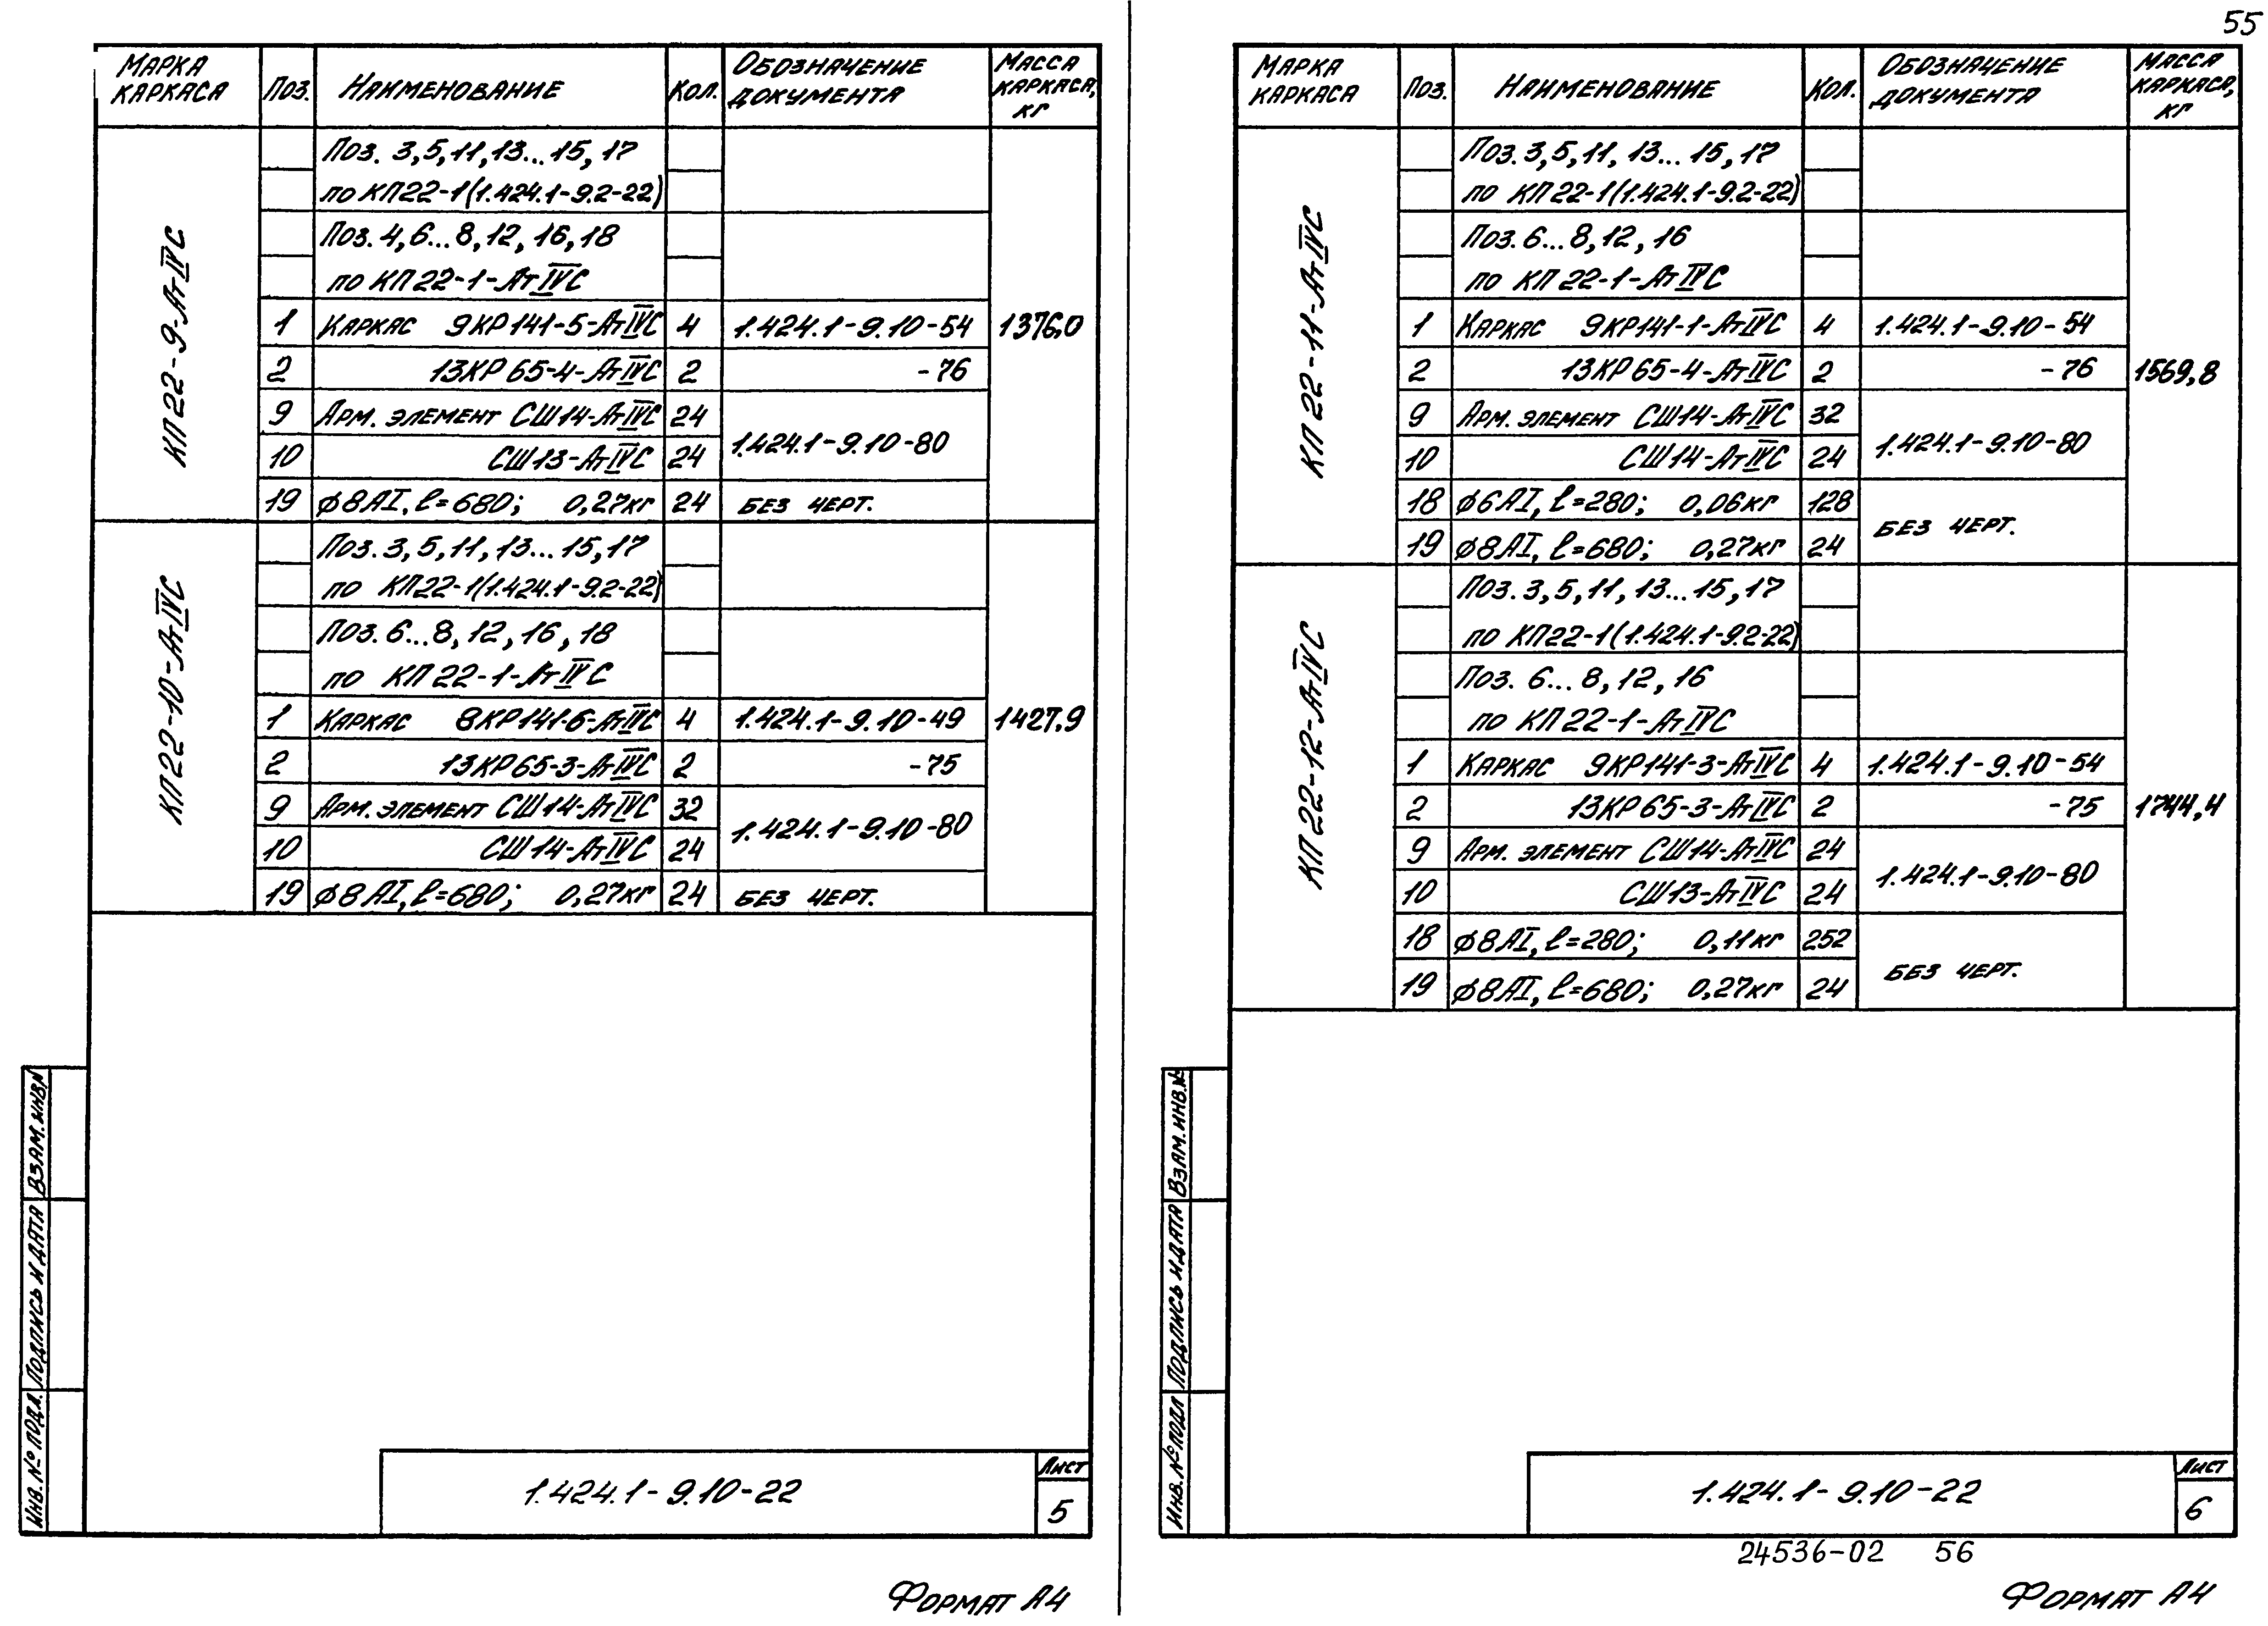 55
МАРКА КАРКАСА ПОЗ. НАИМЕНОВАНИЕ КОЛ. ОБОЗНАЧЕНИЕ ДОКУМЕНТА МАССА КАРКАСА, КГ
КП22-9-АтIVС
Поз. 3,5,11,13...15,17
по КП22-1(1.424.1-9.2-22)
Поз. 4,6...8,12,16,18
по КП22-1-АтIVС
1 КАРКАС 9КР141-5-АтIVС 4 1.424.1-9.10-54 1376,0
2 13КР65-4-АтIVС 2 -76
9 АРМ. ЭЛЕМЕНТ СШ14-АтIVС 24 1.424.1-9.10-80
10 СШ13-АтIVС 24
19 ϕ8АI, ℓ=680; 0,27кг 24 БЕЗ ЧЕРТ.
КП22-10-АтIVС
Поз. 3,5,11,13...15,17
по КП22-1(1.424.1-9.2-22)
Поз. 6...8,12,16,18
по КП22-1-АтIVС
1 КАРКАС 8КР141-6-АтIVС 4 1.424.1-9.10-49 1427,9
2 13КР65-3-АтIVС 2 -75
9 АРМ. ЭЛЕМЕНТ СШ14-АтIVС 32 1.424.1-9.10-80
10 СШ14-АтIVС 24
19 ϕ8АI, ℓ=680; 0,27кг 24 БЕЗ ЧЕРТ.
ИНВ. № ПОДЛ. ПОДПИСЬ И ДАТА ВЗАМ. ИНВ.№
1.424.1-9.10-22
ЛИСТ
5
ФОРМАТ А4
МАРКА КАРКАСА ПОЗ. НАИМЕНОВАНИЕ КОЛ. ОБОЗНАЧЕНИЕ ДОКУМЕНТА МАССА КАРКАСА, КГ
КП22-11-АтIVС
Поз. 3,5,11,13...15,17
по КП22-1(1.424.1-9.2-22)
Поз. 6...8,12,16
по КП22-1-АтIVС
1 КАРКАС 9КР141-1-АтIVС 4 1.424.1-9.10-54
2 13КР65-4-АтIVС 2 -76 1569,8
9 АРМ. ЭЛЕМЕНТ СШ14-АтIVС 32 1.424.1-9.10-80
10 СШ14-АтIVС 24
18 ϕ6АI, ℓ=280; 0,06кг 128 БЕЗ ЧЕРТ.
19 ϕ8АI, ℓ=680; 0,27кг 24
КП22-12-АтIVС
Поз. 3,5,11,13...15,17
по КП22-1(1.424.1-9.2-22)
Поз. 6...8,12,16
по КП22-1-АтIVС
1 КАРКАС 9КР141-3-АтIVС 4 1.424.1-9.10-54
2 13КР65-3-АтIVС 2 -75 1744,4
9 АРМ. ЭЛЕМЕНТ СШ14-АтIVС 24 1.424.1-9.10-80
10 СШ13-АтIVС 24
18 ϕ8АI, ℓ=280; 0,11кг 252 БЕЗ ЧЕРТ.
19 ϕ8АI, ℓ=680; 0,27кг 24
ИНВ. № ПОДЛ ПОДПИСЬ И ДАТА ВЗАМ. ИНВ.№
1.424.1-9.10-22
ЛИСТ
6
24536-02 56
ФОРМАТ А4